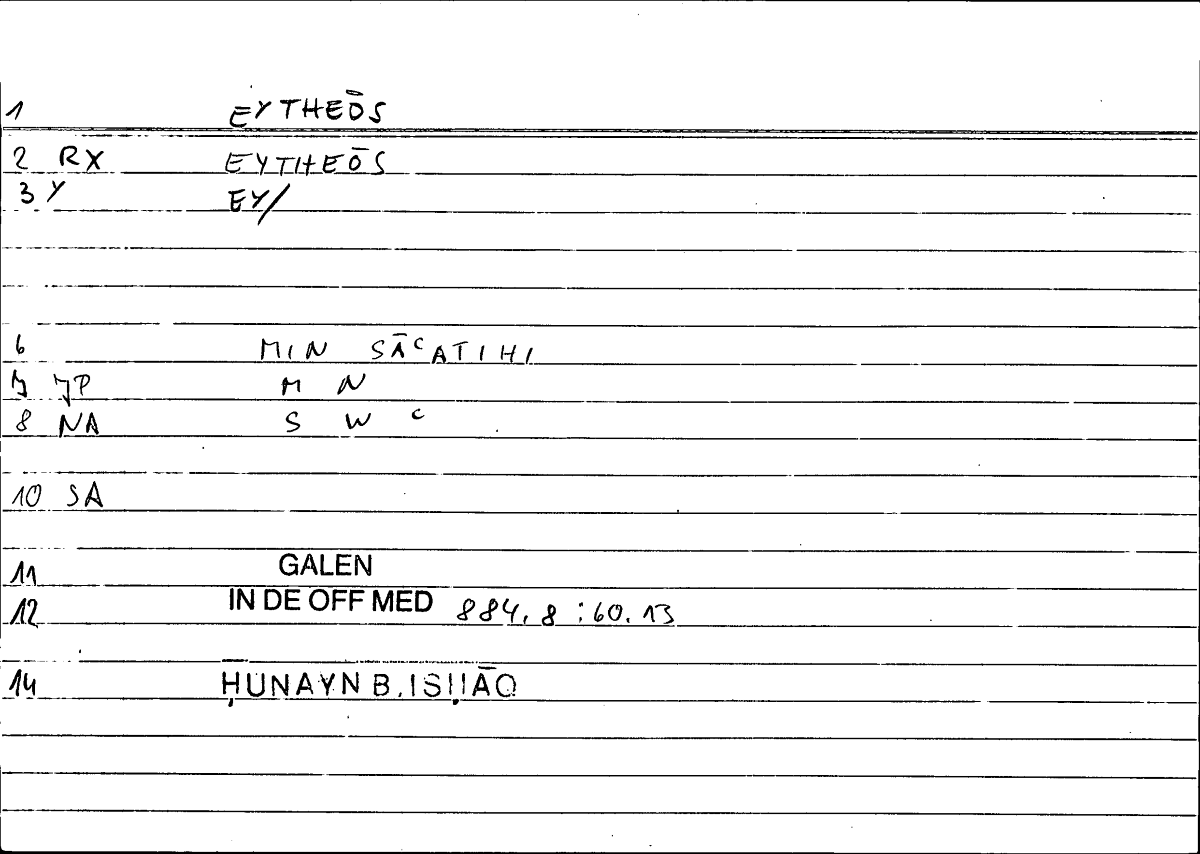 1 EYTHEŌS
2 RX EYTHEŌS
3 Y EY/
6 MIN SĀᶜATIHI
7 JP M N
8 NA S W ᶜ
10 SA
11 GALEN
12 IN DE OFF MED 884,8:60.13
14 ḤUNAYN B.ISḤĀQ